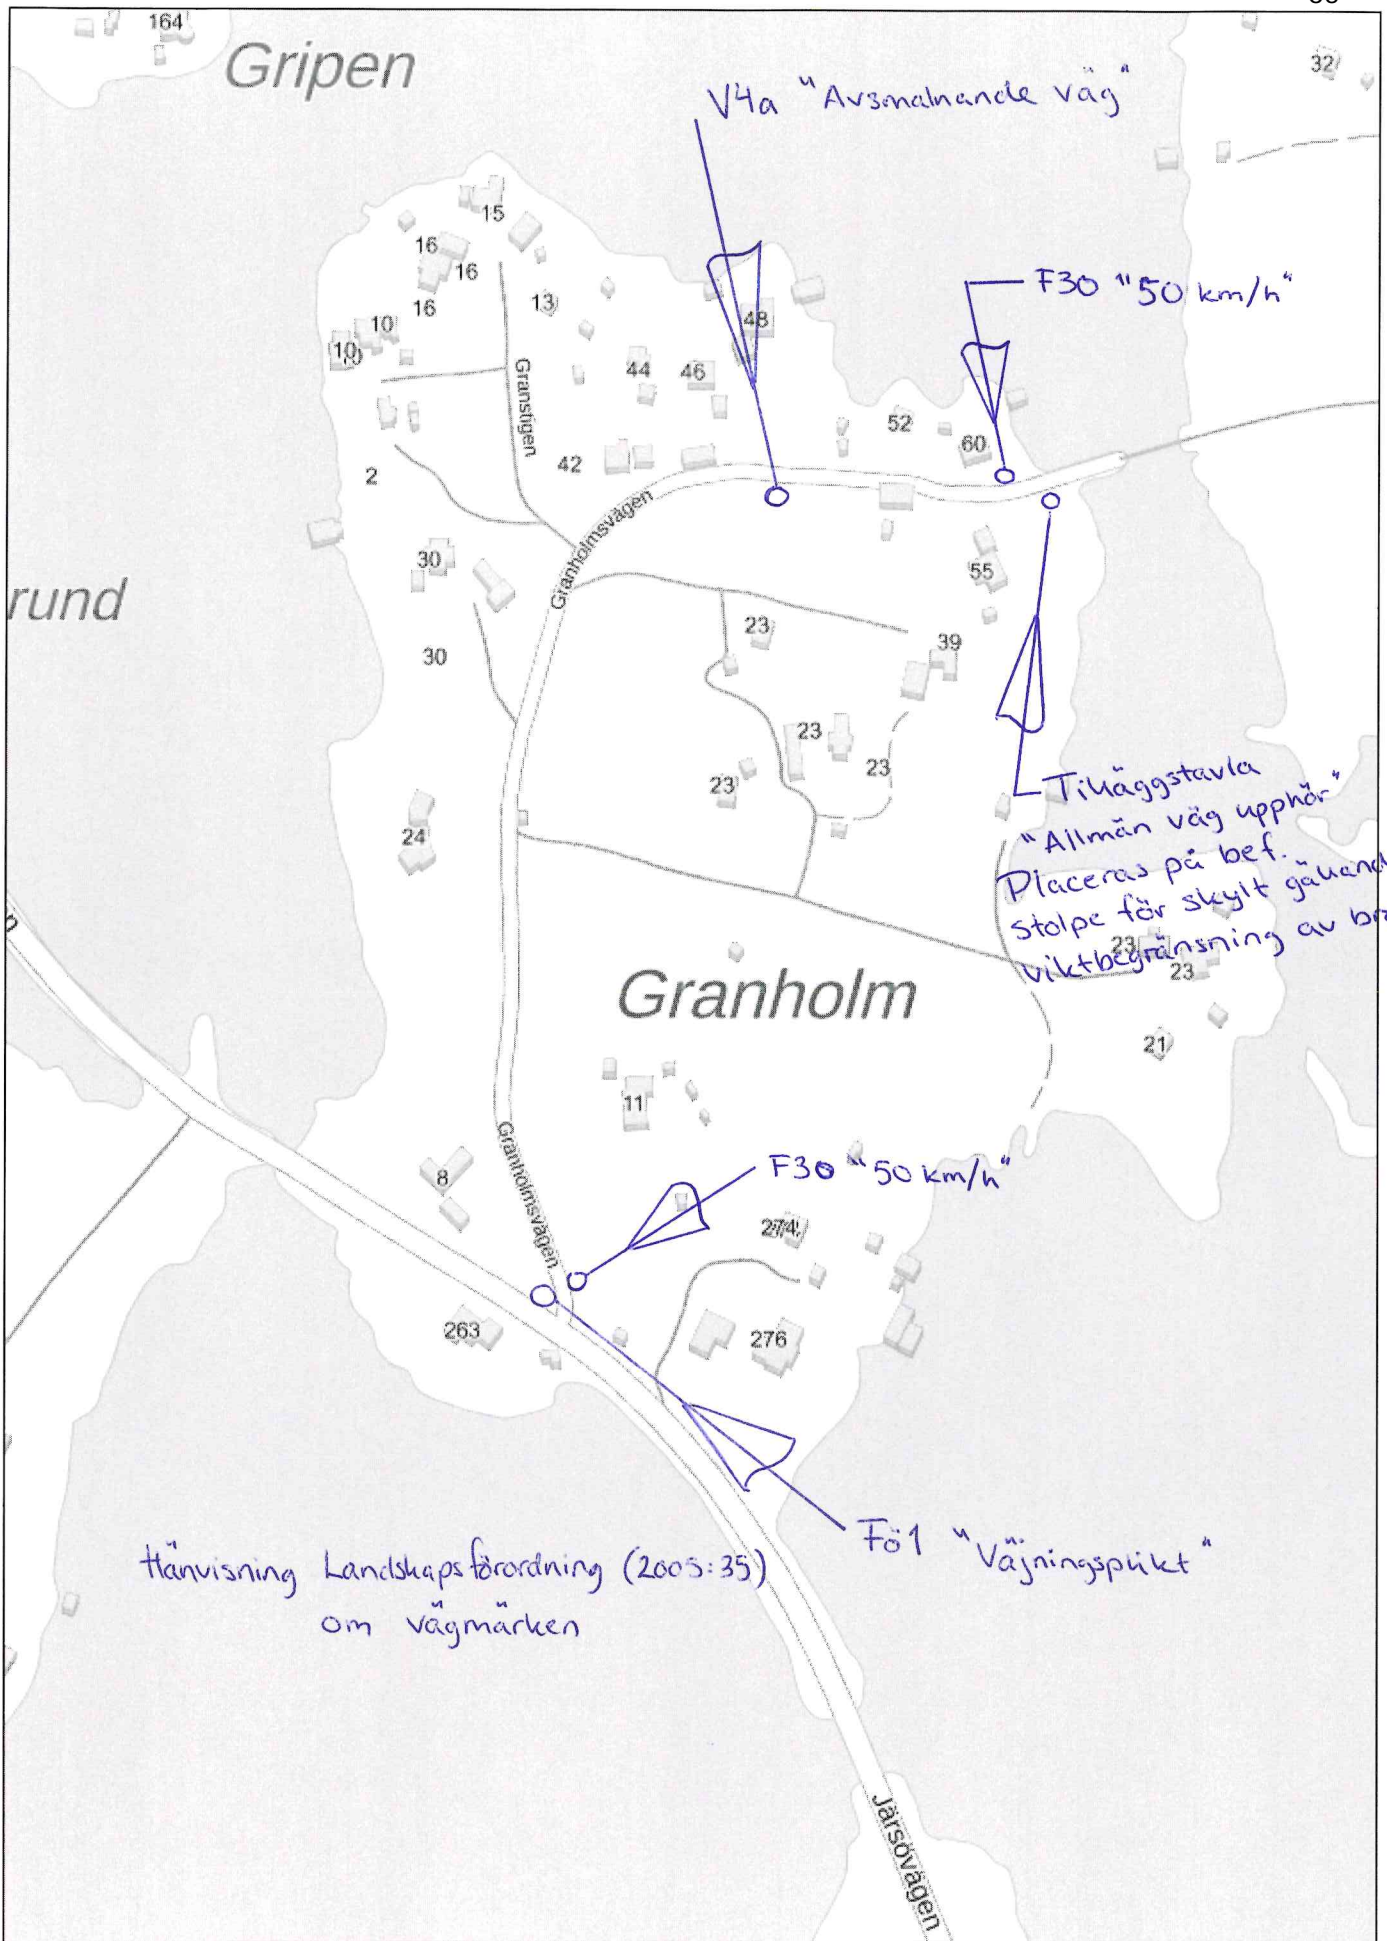 164
Gripen
32
V4a "Avsmalnande väg"
15
16
16
16
13
F30 "50 km/h"
10
10
48
44
46
Granstigen
52
60
42
2
Granholmsvägen
30
55
rund
23
39
30
23
23
23
24
Tilläggstavla
"Allmän väg upphör"
Placeras på bef.
stolpe för skylt gällande
viktbegränsning av
23
23
Granholm
21
11
Granholmsvägen
8
F30 "50 km/h"
274
263
276
Fö1 "Väjningsplikt"
Hänvisning Landskapsförordning (2005:35)
om vägmärken
Järsövägen